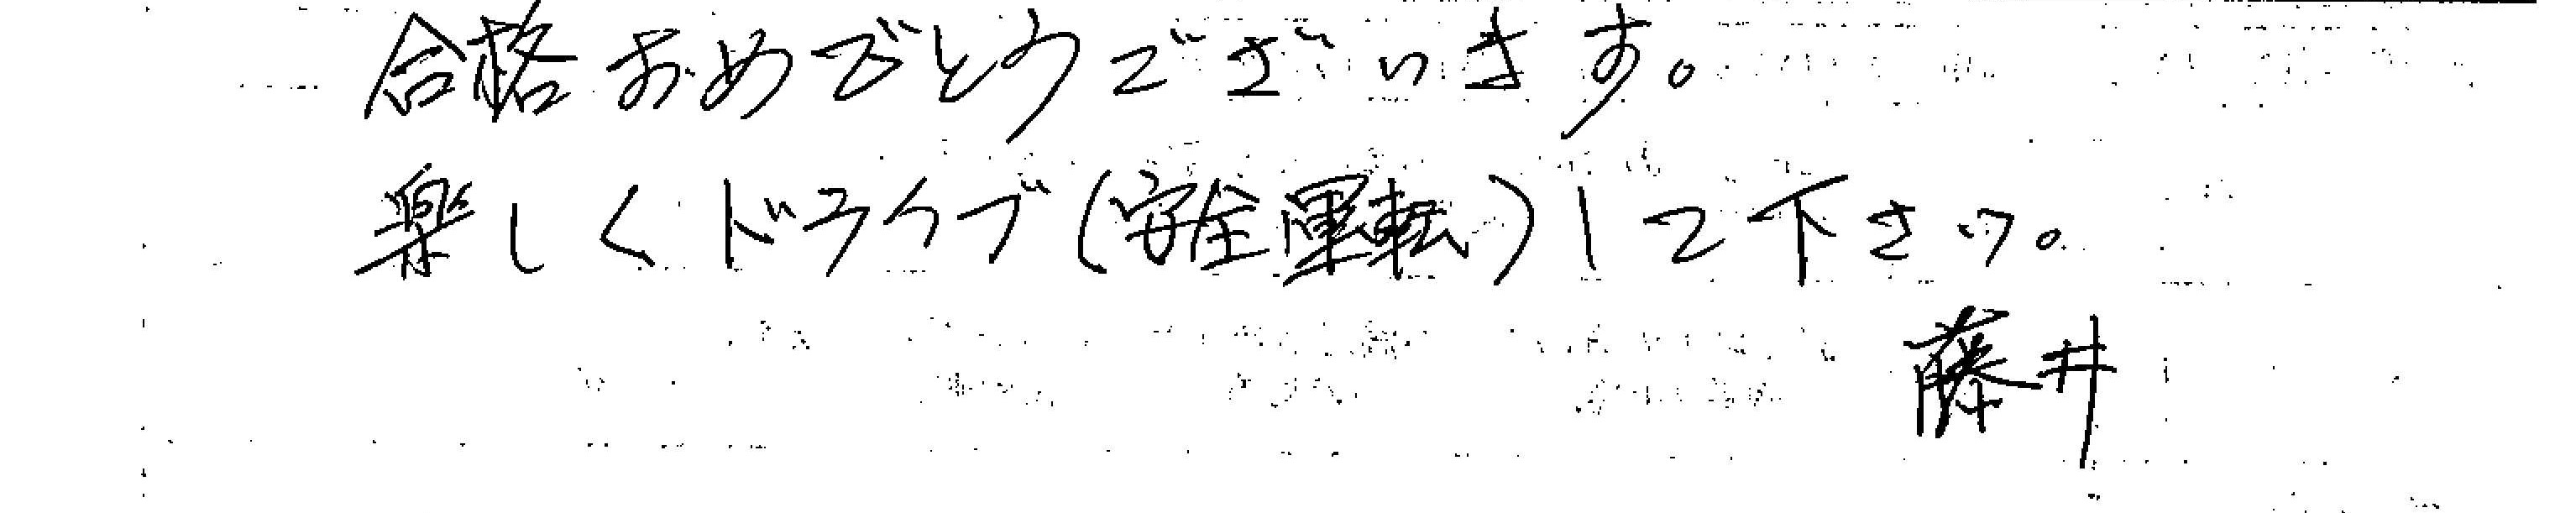 合格おめでとうございます。
楽しくドライブ(安全運転)して下さい。
藤井